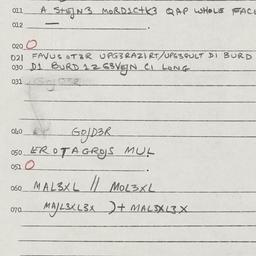 011 A STEJN3 MORDICTK3 QAP WHOLE FACE
012 — .
020 O
021 FAVUSOT3R UPG3RAZIRT/UPG3GULT DI BURD
030 D1 BURD 12 G3VEJN CI LONG
031
040 GOJD3R
050 EROTAGROJS MUL.
051 O
060 MAL3XL // MOL3XL
070 MAJL3XL3X )+ MAL3XL3X